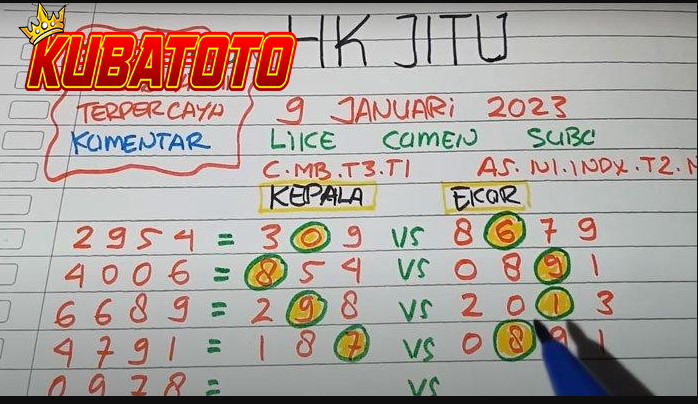 HK JITU
KUBATOTO
TERPERCAYA 9 JANUARI 2023
KOMENTAR LIKE COMEN SUBC
C.MB.T3.T1 AS.N1.INDX.T2.M
KEPALA EKOR
2954 = 309 VS 8679
4006 = 854 VS 0891
6689 = 298 VS 2013
4791 = 187 VS 0891
0978 = VS